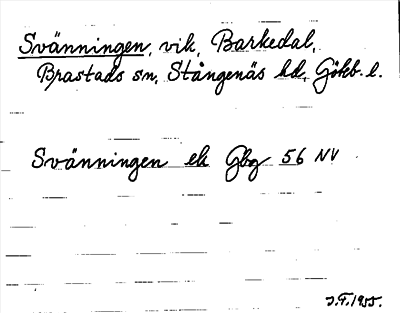 Svänningen, vik, Barkedal,
Brastads sn, Stångenäs hd, Göteb. l.
Svänningen ek Gbg 56 NV
J.F. 1955.